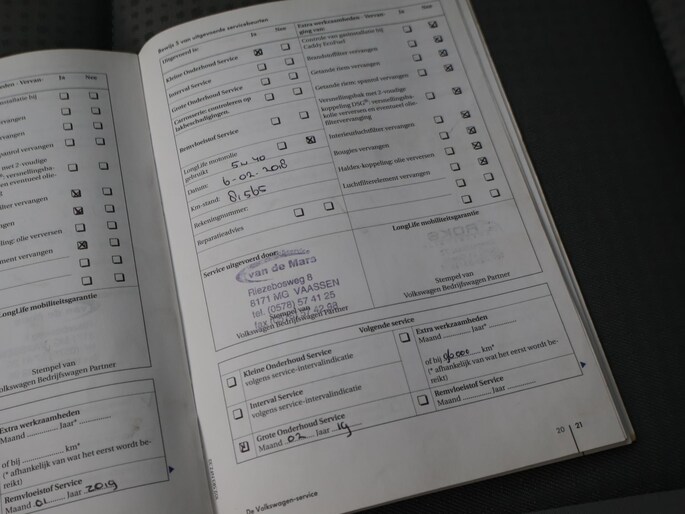 eden - Vervan-
Ja
Nee
nstallatie bij
vervangen
vangen
spanrol vervangen
met 2-voudige
filter vervangen
vangen
ling: olie verversen
ement vervangen
LongLife mobiliteitsgarantie
Stempel van
Volkswagen Bedrijfswagen Partner
Extra werkzaamheden
Maand Jaar*
of bij km*
(* afhankelijk van wat het eerst wordt be-
reikt)
Remvloeistof Service
Maand 01 Jaar 2019
Bewijs 5 van uitgevoerde servicebeurten
Uitgevoerd is:
Ja
Nee
Kleine Onderhoud Service
Interval Service
Grote Onderhoud Service
Carrosserie: controleren op
lakbeschadigingen.
Remvloeistof Service
LongLife motorolie
gebruikt 5W40
Datum: 6-02-2018
Km-stand: 81.565
Rekeningnummer:
Reparatieadvies
Service uitgevoerd door:
van de Mars
Riezebosweg 8
8171 MG VAASSEN
tel. (0578) 57 41 25
Stempel van
Volkswagen Bedrijfswagen Partner
Extra werkzaamheden - Vervan-
ging van:
Ja
Nee
Controle van gasinstallatie bij
Caddy EcoFuel
Brandstoffilter vervangen
Getande riem vervangen
Getande riem: spanrol vervangen
Versnellingsbak met 2-voudige
koppeling DSG®: versnellingsba-
kolie verversen en eventueel olie-
filtervervanging
Interieurluchtfilter vervangen
Bougies vervangen
Haldex-koppeling: olie verversen
Luchtfilterelement vervangen
LongLife mobiliteitsgarantie
Stempel van
Volkswagen Bedrijfswagen Partner
Volgende service
Kleine Onderhoud Service
volgens service-intervalindicatie
Interval Service
volgens service-intervalindicatie
Grote Onderhoud Service
Maand 02 Jaar 19
Extra werkzaamheden
Maand Jaar*
of bij km*
(* afhankelijk van wat het eerst wordt be-
reikt)
Remvloeistof Service
Maand Jaar
De Volkswagen-service
20 21